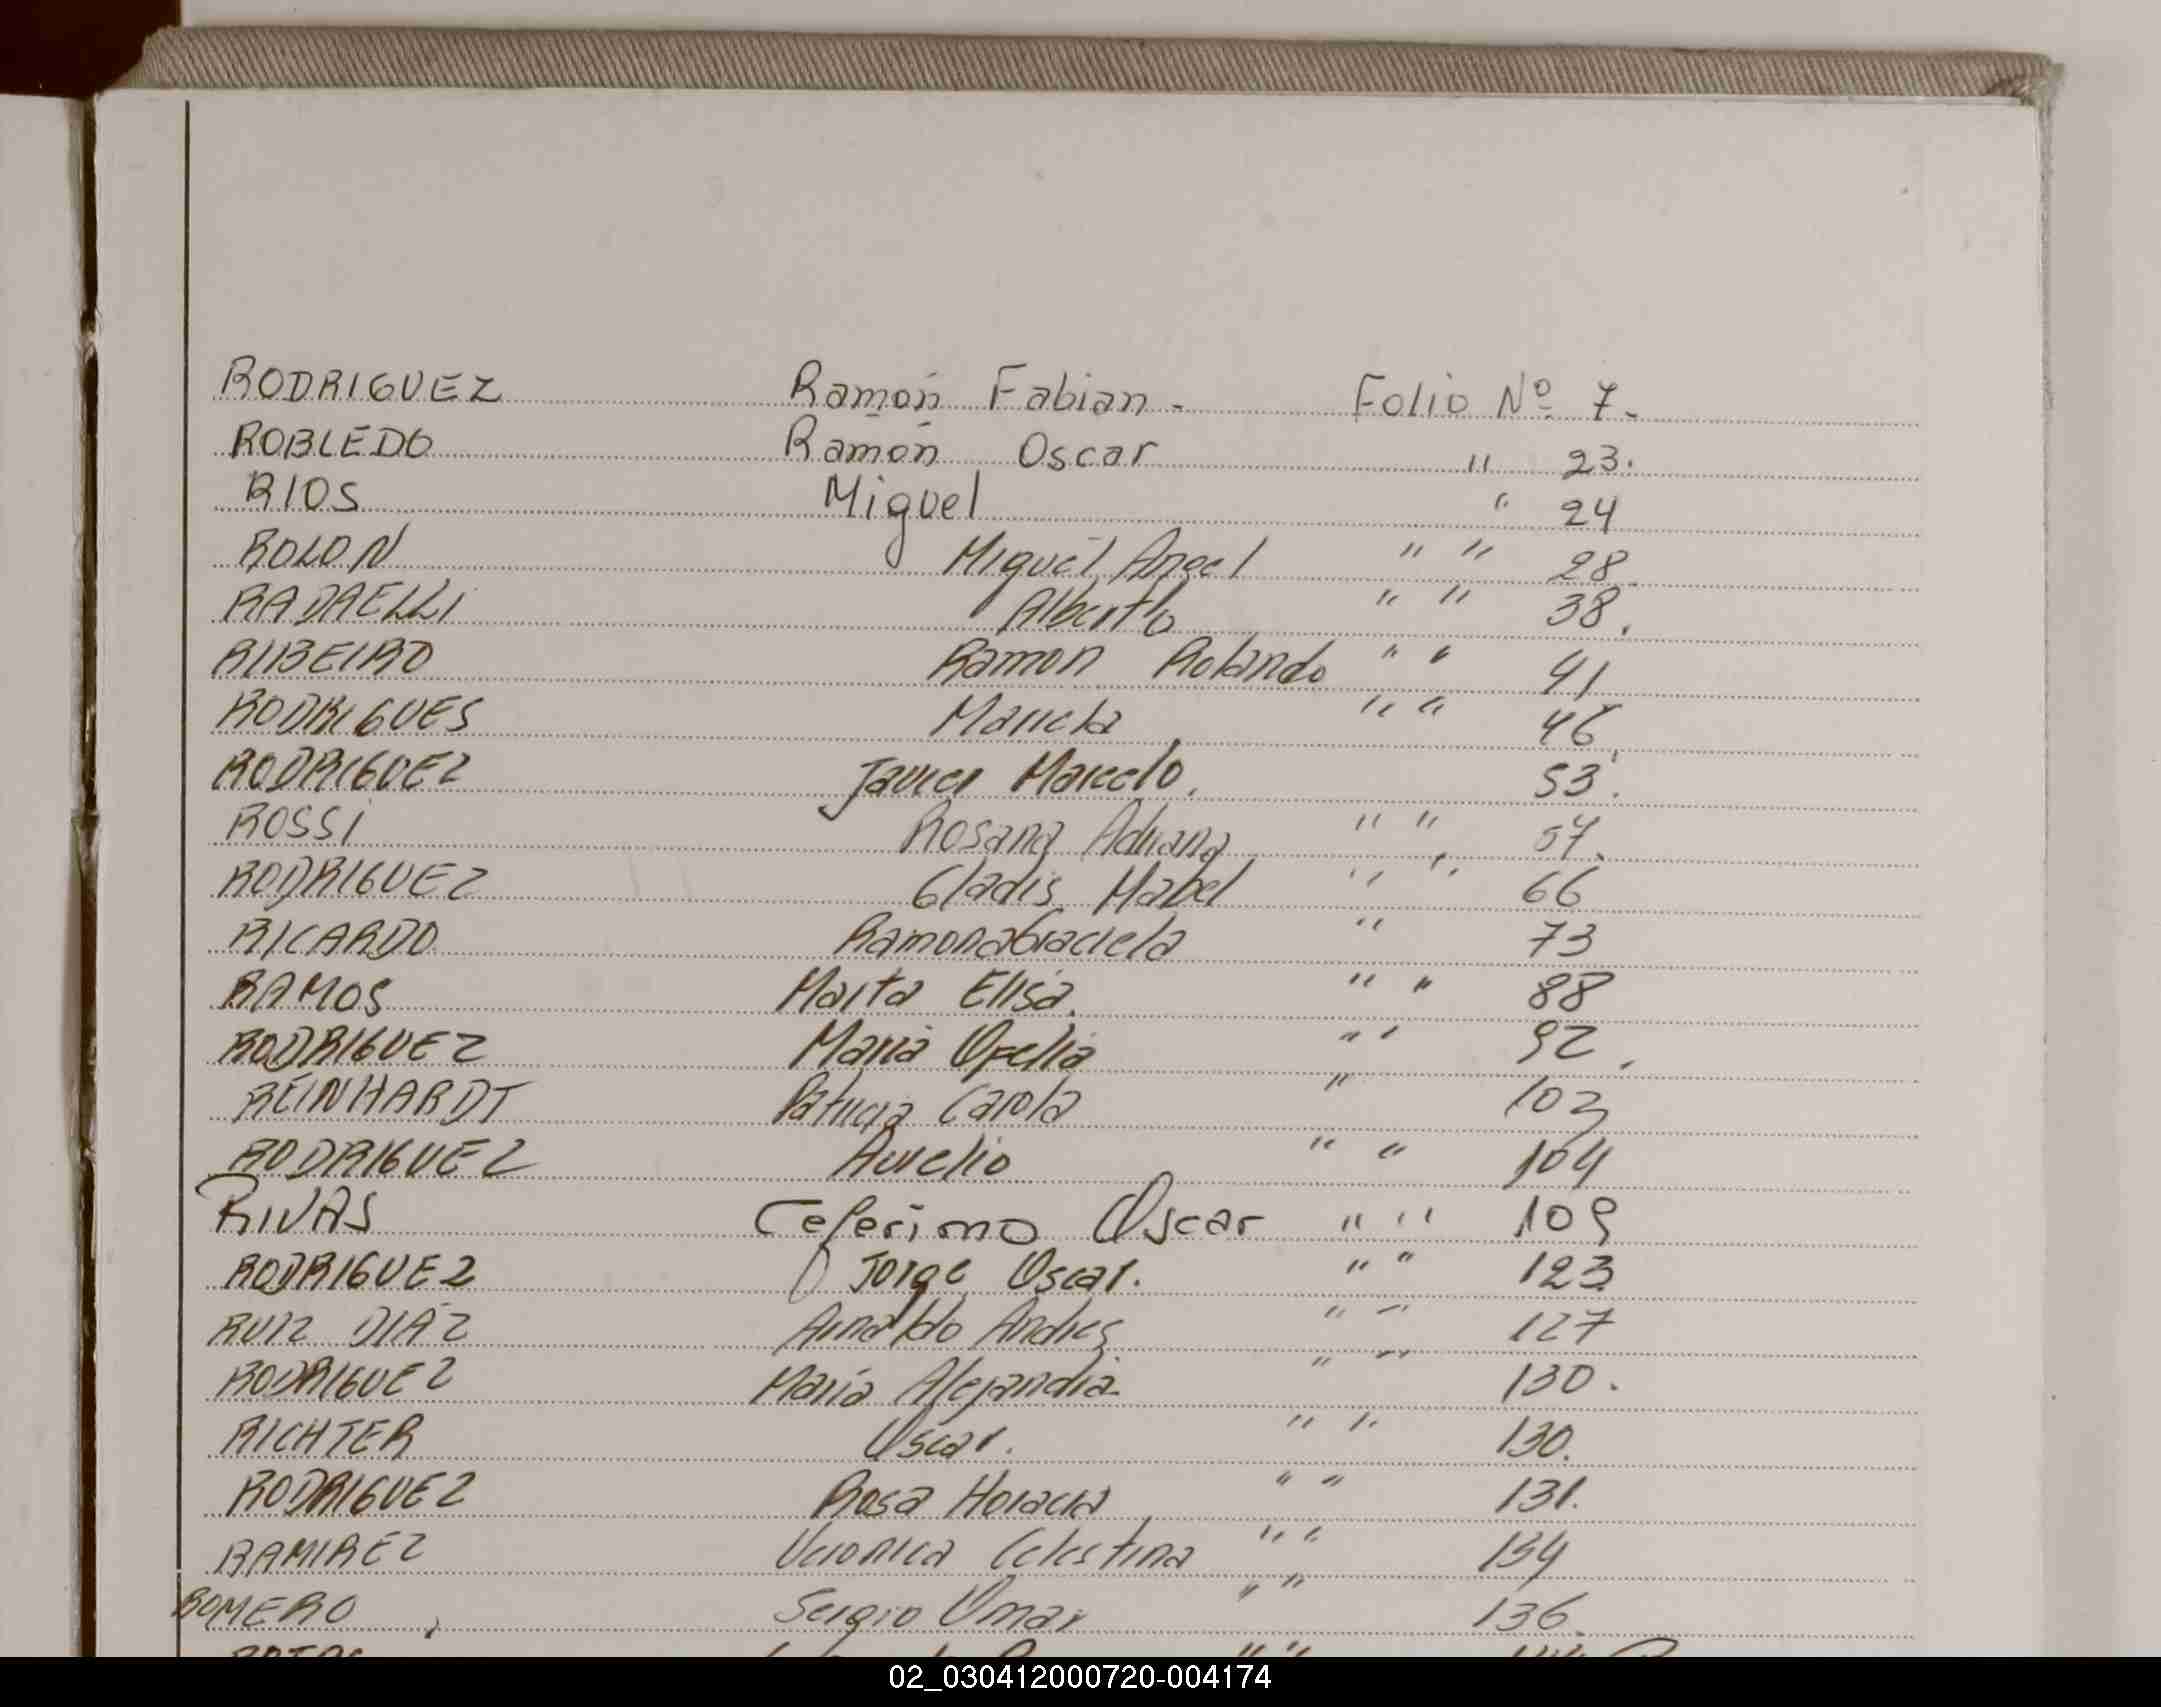 RODRIGUEZ Ramón Fabian - Folio Nº 7.
ROBLEDO Ramón Oscar " 23.
RIOS Miguel " 24
ROLON Miguel Angel " " 28.
RADAELLI Alberto " " 38.
RIBEIRO Ramon Rolando " " 41
RODRIGUES Mariela " " 46.
RODRIGUEZ Javier Marcelo. 53.
ROSSI Rosana Adriana " " 57.
RODRIGUEZ Gladis Mabel " " 66
RICARDO Ramona Graciela " 73
RAMOS Marta Elisa. " " 88
RODRIGUEZ Maria Ofelia " " 92.
REINHARDT Patricia Carola " 103
RODRIGUEZ Aurelio " " 104
RIVAS Ceferino Oscar " " 109
RODRIGUEZ Jorge Oscar. " " 123
RUIZ DIAZ Arnaldo Andres " " 127
RODRIGUEZ María Alejandra " " 130.
RICHTER Oscar. " " 130.
RODRIGUEZ Rosa Horacia " " 131.
RAMIREZ Veronica Celestina " " 134
ROMERO Sergio Omar " " 136.
02_030412000720-004174